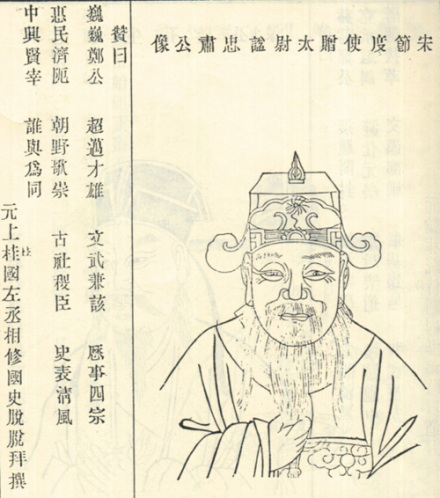 宋節度使贈太尉謚忠肅公像
贊曰
巍巍鄭公 超邁才雄 文武兼該 歷事四宗
惠民濟阨 朝野歌崇 古社稷臣 史表清風
中興賢宰 誰與爲同
元上桂國左丞相修國史脫脫拜撰
柱